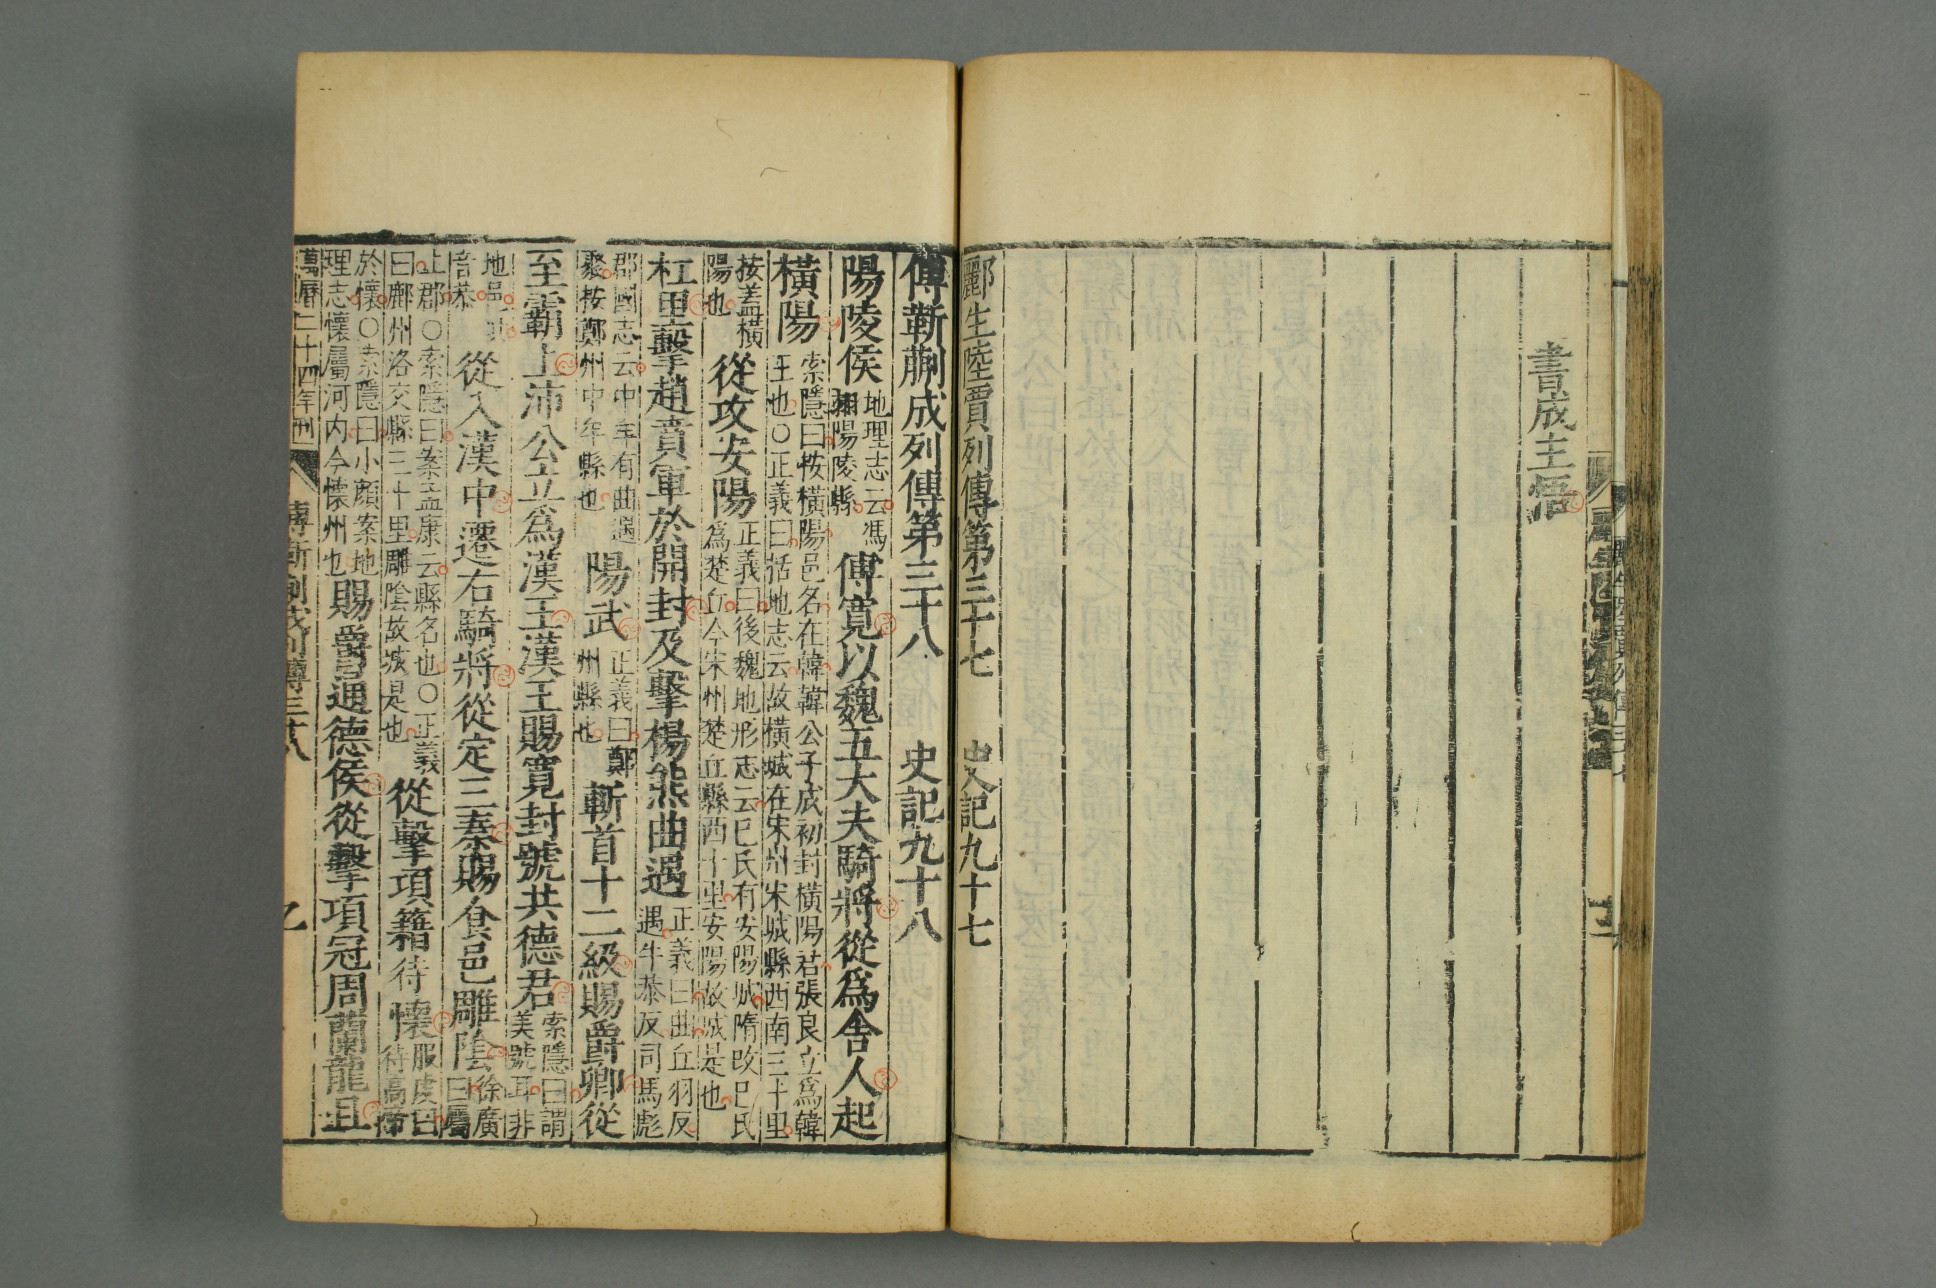 書成主悟
酈生陸賈列傳第三十七　史記九十七
傅靳蒯成列傳第三十八　史記九十八
陽陵侯地理志云馮翊陽陵縣傅寬以魏五大夫騎將從爲舍人起
橫陽索隱曰按橫陽邑名在韓韓公子成初封橫陽君張良立爲韓王也○正義曰括地志云故橫城在宋州宋城縣西南三十里
按蓋橫陽也從攻安陽正義曰後魏地形志云巳氏有安陽城隋改巳氏爲楚丘今宋州楚丘縣西十里安陽故城是也
杠里擊趙賁軍於開封及擊楊熊曲遇正義曰曲丘羽反遇牛恭反司馬彪
郡國志云中牟有曲遇聚按鄭州中牟縣也陽武正義曰鄭州縣也斬首十二級賜爵卿從
至霸上沛公立爲漢王漢王賜寬封號共德君索隱曰謂美號耳非
地邑音恭從入漢中遷右騎將從定三秦賜食邑雕陰徐廣曰屬
上郡○索隱曰案孟康云縣名也○正義曰鄜州洛交縣三十里雕陰故城是也從擊項籍待懷服虔曰待高帝
於懷○索隱曰小顏案地理志懷屬河內今懷州也賜爵通德侯從擊項冠周蘭龍且
萬曆二十四年刊　傅靳蒯成列傳三十八